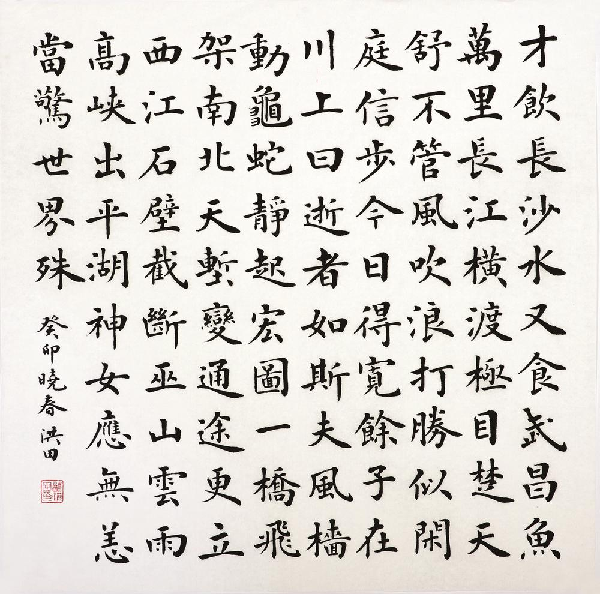 才飲長沙水又食武昌魚
萬里長江橫渡極目楚天
舒不管風吹浪打勝似閑
庭信步今日得寬餘子在
川上曰逝者如斯夫風檣
動龜蛇靜起宏圖一橋飛
架南北天塹變通途更立
西江石壁截斷巫山雲雨
髙峡出平湖神女應無恙
當驚世界殊
癸卯曉春洪田